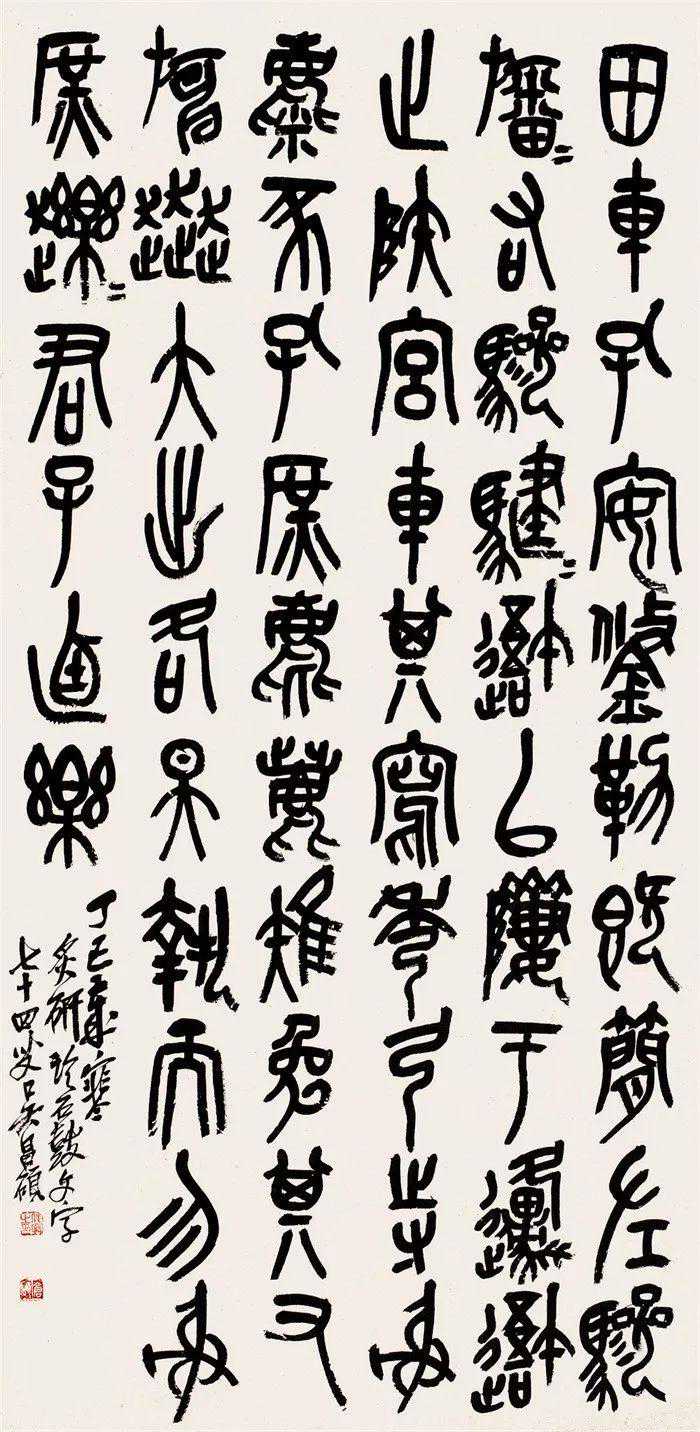 田車孔安鋚勒既簡左驂
旛=右驂騝=䢦以隮于邍䢦
止陝宮車其寫秀弓寺射
麋豕孔庶麀鹿雉兔其又
大出各昊執而勿射
庶䟏=君子逌樂
丁巳歲寒
炙研臨石鼓文字
七十四叟吳昌碩